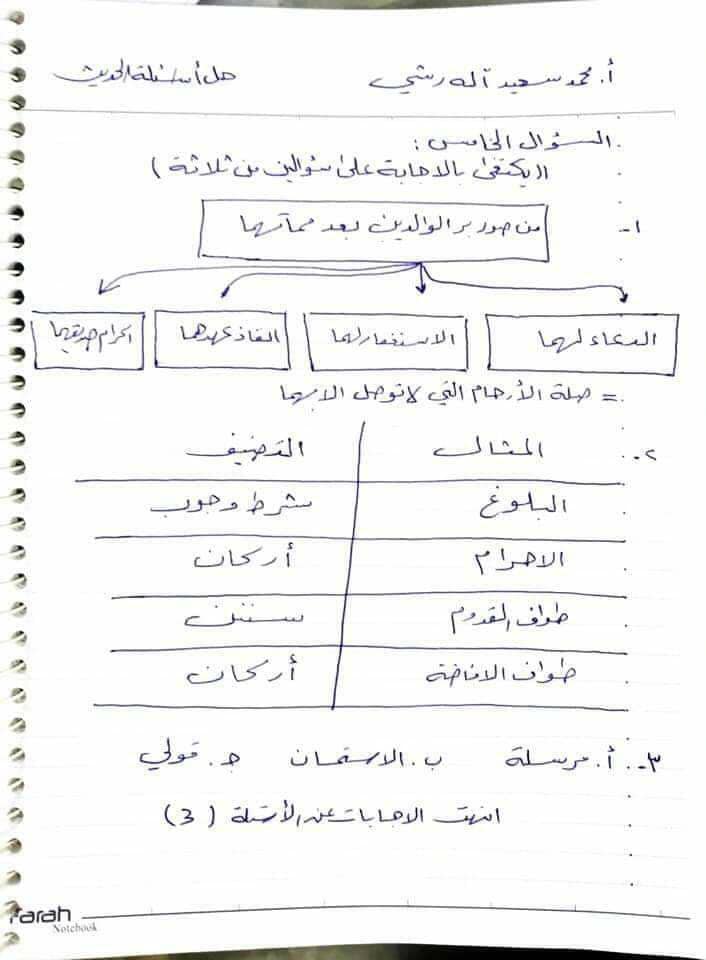 أ. محمد سعيد آله رشي حل أسئلة الحديث
السؤال الخامس :
(( يكتفى بالاجابة على سؤالين من ثلاثة )
١- من صور بر الوالدين بعد مماتهما
الدعاء لهما الاستغفار لهما انفاذ عهدهما اكرام صديقهما
= صلة الأرحام التي لا توصل الا بهما
٢- المثال التصنيف
البلوغ شرط وجوب
الاحرام أركان
طواف القدوم سنن
طواف الافاضة أركان
٣- أ. مرسلة ب. الاستحسان ج. قولي
انتهت الاجابات عن الأسئلة (3)
farah
Notebook